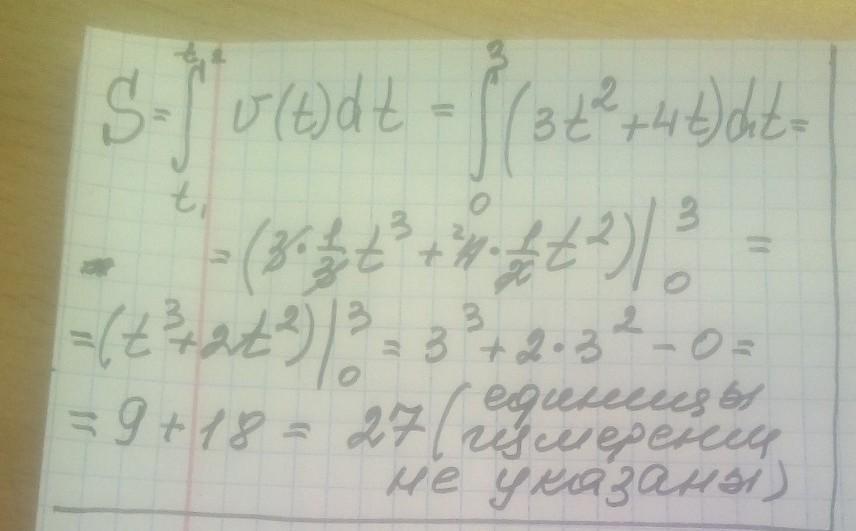 S = ∫_{t₁}^{t₂} v(t)dt = ∫_{0}^{3} (3t² + 4t)dt =
= (3 · 1/3 t³ + ²4 · 1/2 t²)|₀³ =
= (t³ + 2t²)|₀³ = 3³ + 2 · 3² - 0 =
= 9 + 18 = 27 (единицы
измерения
не указаны)